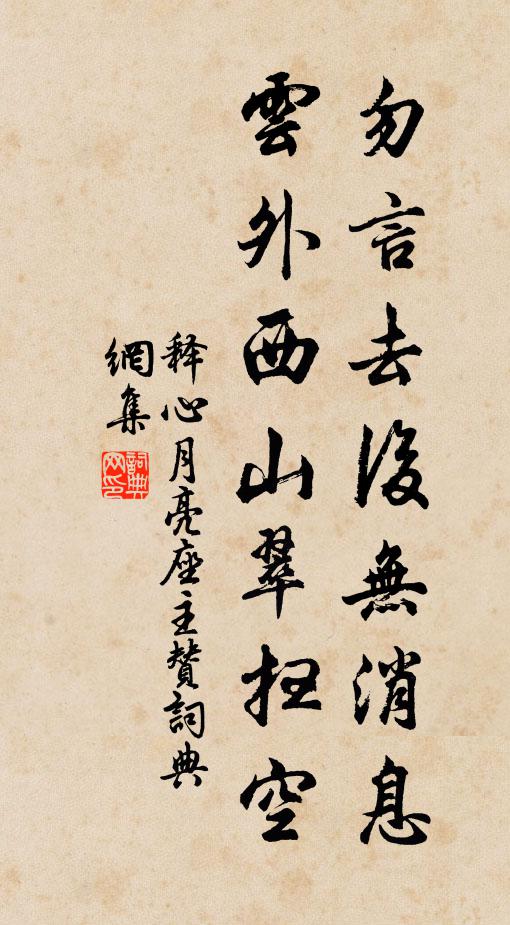 勿言去後無消息
雲外西山翠扫空
释心月亮座主赞詞典
網集
詞典
网印